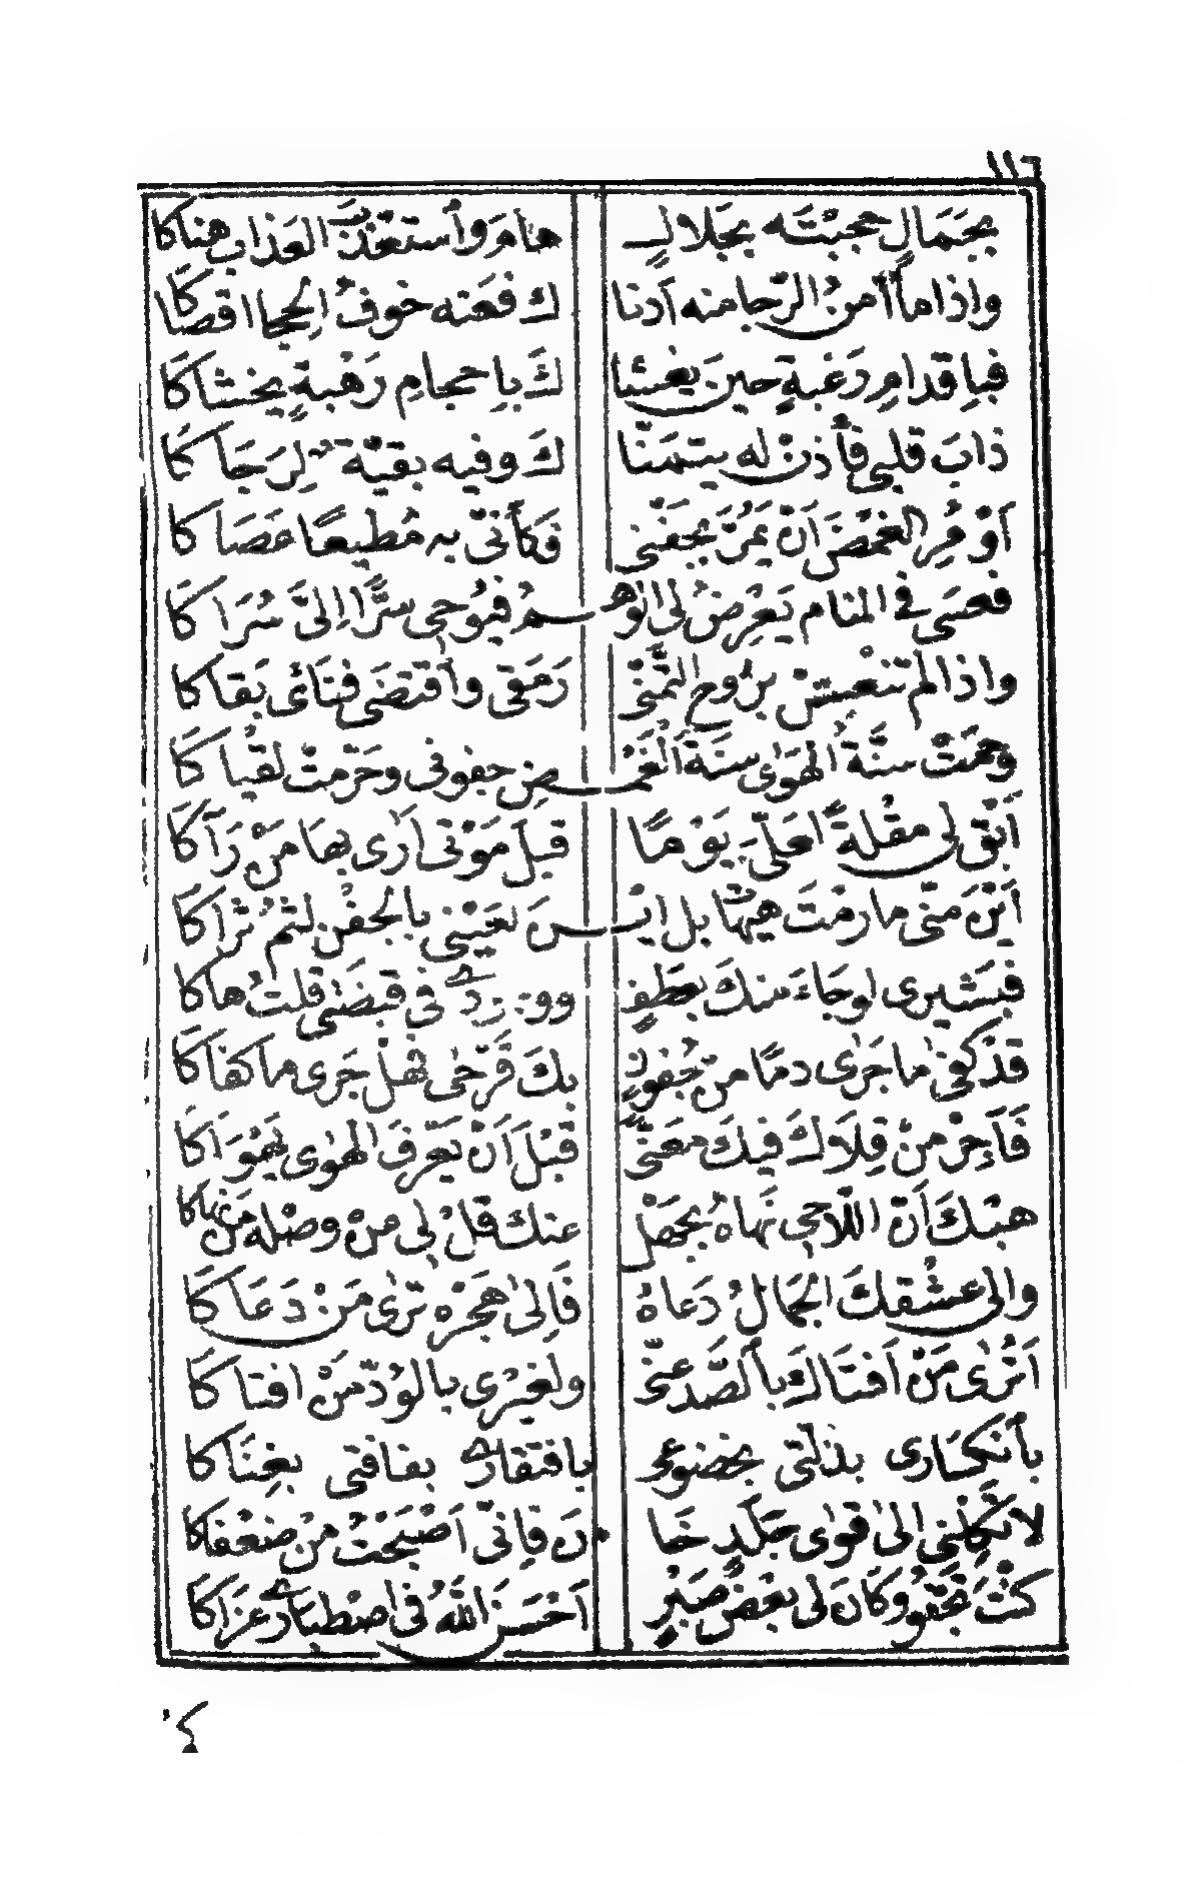 ١١٦
بجَمَالٍ حجبْتَه بجَلالٍ هامَ وأستعْذبَ العَذابَ هناكا
واذا ما أمنُ الرّجا منه أدنا ك فعَنه خوفُ الحِجا اقصَاكا
فباِقدامِ رَغبةٍ حينَ يغشا كَ باِحجامِ رَهْبةٍ يخشاكا
ذابَ قلبى فأْذنْ له يتمَنّا كَ وفيه بقيّةٌ لِرَجَاكا
أوْ مُرِ الغمْضَ أنْ يَمُرَّ بجَفْنى فكأنّى به مُطيعًا عَصَاكا
فعسَى فى المنام يَعْرِضُ لى الوهـ ـمُ فيُوحِى سرًّا اِلىَّ سُرَاكا
واذا لم تنعِشْ برُوحِ التّمنّى رَمَقى وأقتضَى فنَائى بَقاكا
وحمَتْ سنّةُ الهوَى سنَةَ الغمـ ـض جفونى وحَرّمتْ لقيَاكا
أبْقِ لى مقْلةً لعَلّىَ يوْمًا قبلَ مَوْتى أرى بهَا مَنْ رَآكا
أيْنَ منّى ما رمْتَ هيهَاتَ بل ايـ ـنَ لعَيْنى بالجفْن لثمُ ثرَاكا
فبَشيرى لوجَاءَ منكَ بعَطفٍ ووجودى فى قبضَتى قلتُ هاكا
قدْ كفى ما جَرَى دمًا منْ جُفونٍ بكَ قرْحَى فهَلْ جَرى ما كفاكا
فأَجِرْ منْ قِلاكَ فيكَ معَنّى قبْلَ أنْ يَعْرِفَ الهوَى يَهْوَاكا
هبْكَ أنّ اللّاحى نَهاهُ بجَهْلٍ عنكَ قلْ لى منْ وصْله مَن نهاكا
والى عشْقكَ الجمَالُ دَعاهُ فاِلى هَجْرْه ترَى مَنْ دَعَاكا
أتُرَى مَنْ أفتَاكَ بالصّدعنّى ولغيْرى بالوُدّ مَنْ افتاكا
بأنكسَارى بذلّتى بخضوعى بافتقارى بفاقتى بغِنَاكا
لاتكِلْنى الى قوَى جَلَدٍ خَا نَ فإنّى أصْبَحْتُ منْ ضعْفاكا
كنْتَ تجفُو وكَانَ لى بعْضُ صَبْرٍ أحْسَنَ اللهُ فى اصْطبارى عزَاكا
كم